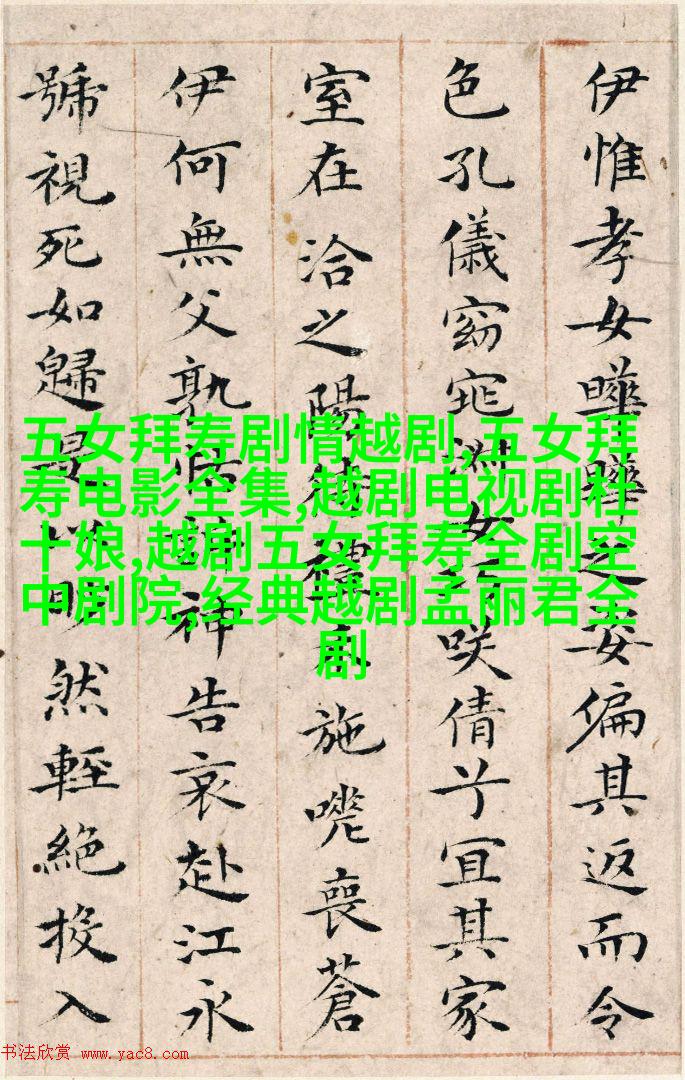 伊惟孝女曄曄之姿偏其返而令
色孔儀窈窕淑女巧咲倩兮宜其家
室在洽之陽待禮未施嗟喪蒼
伊何無父孰怙訴神告哀赴江永
號視死如歸是以眇然輕絕投入
五女拜寿剧情越剧,五女拜
寿电影全集,越剧电视剧杜
十娘,越剧五女拜寿全剧空
中剧院,经典越剧孟丽君全
剧
书法欣赏 www.yac8.com